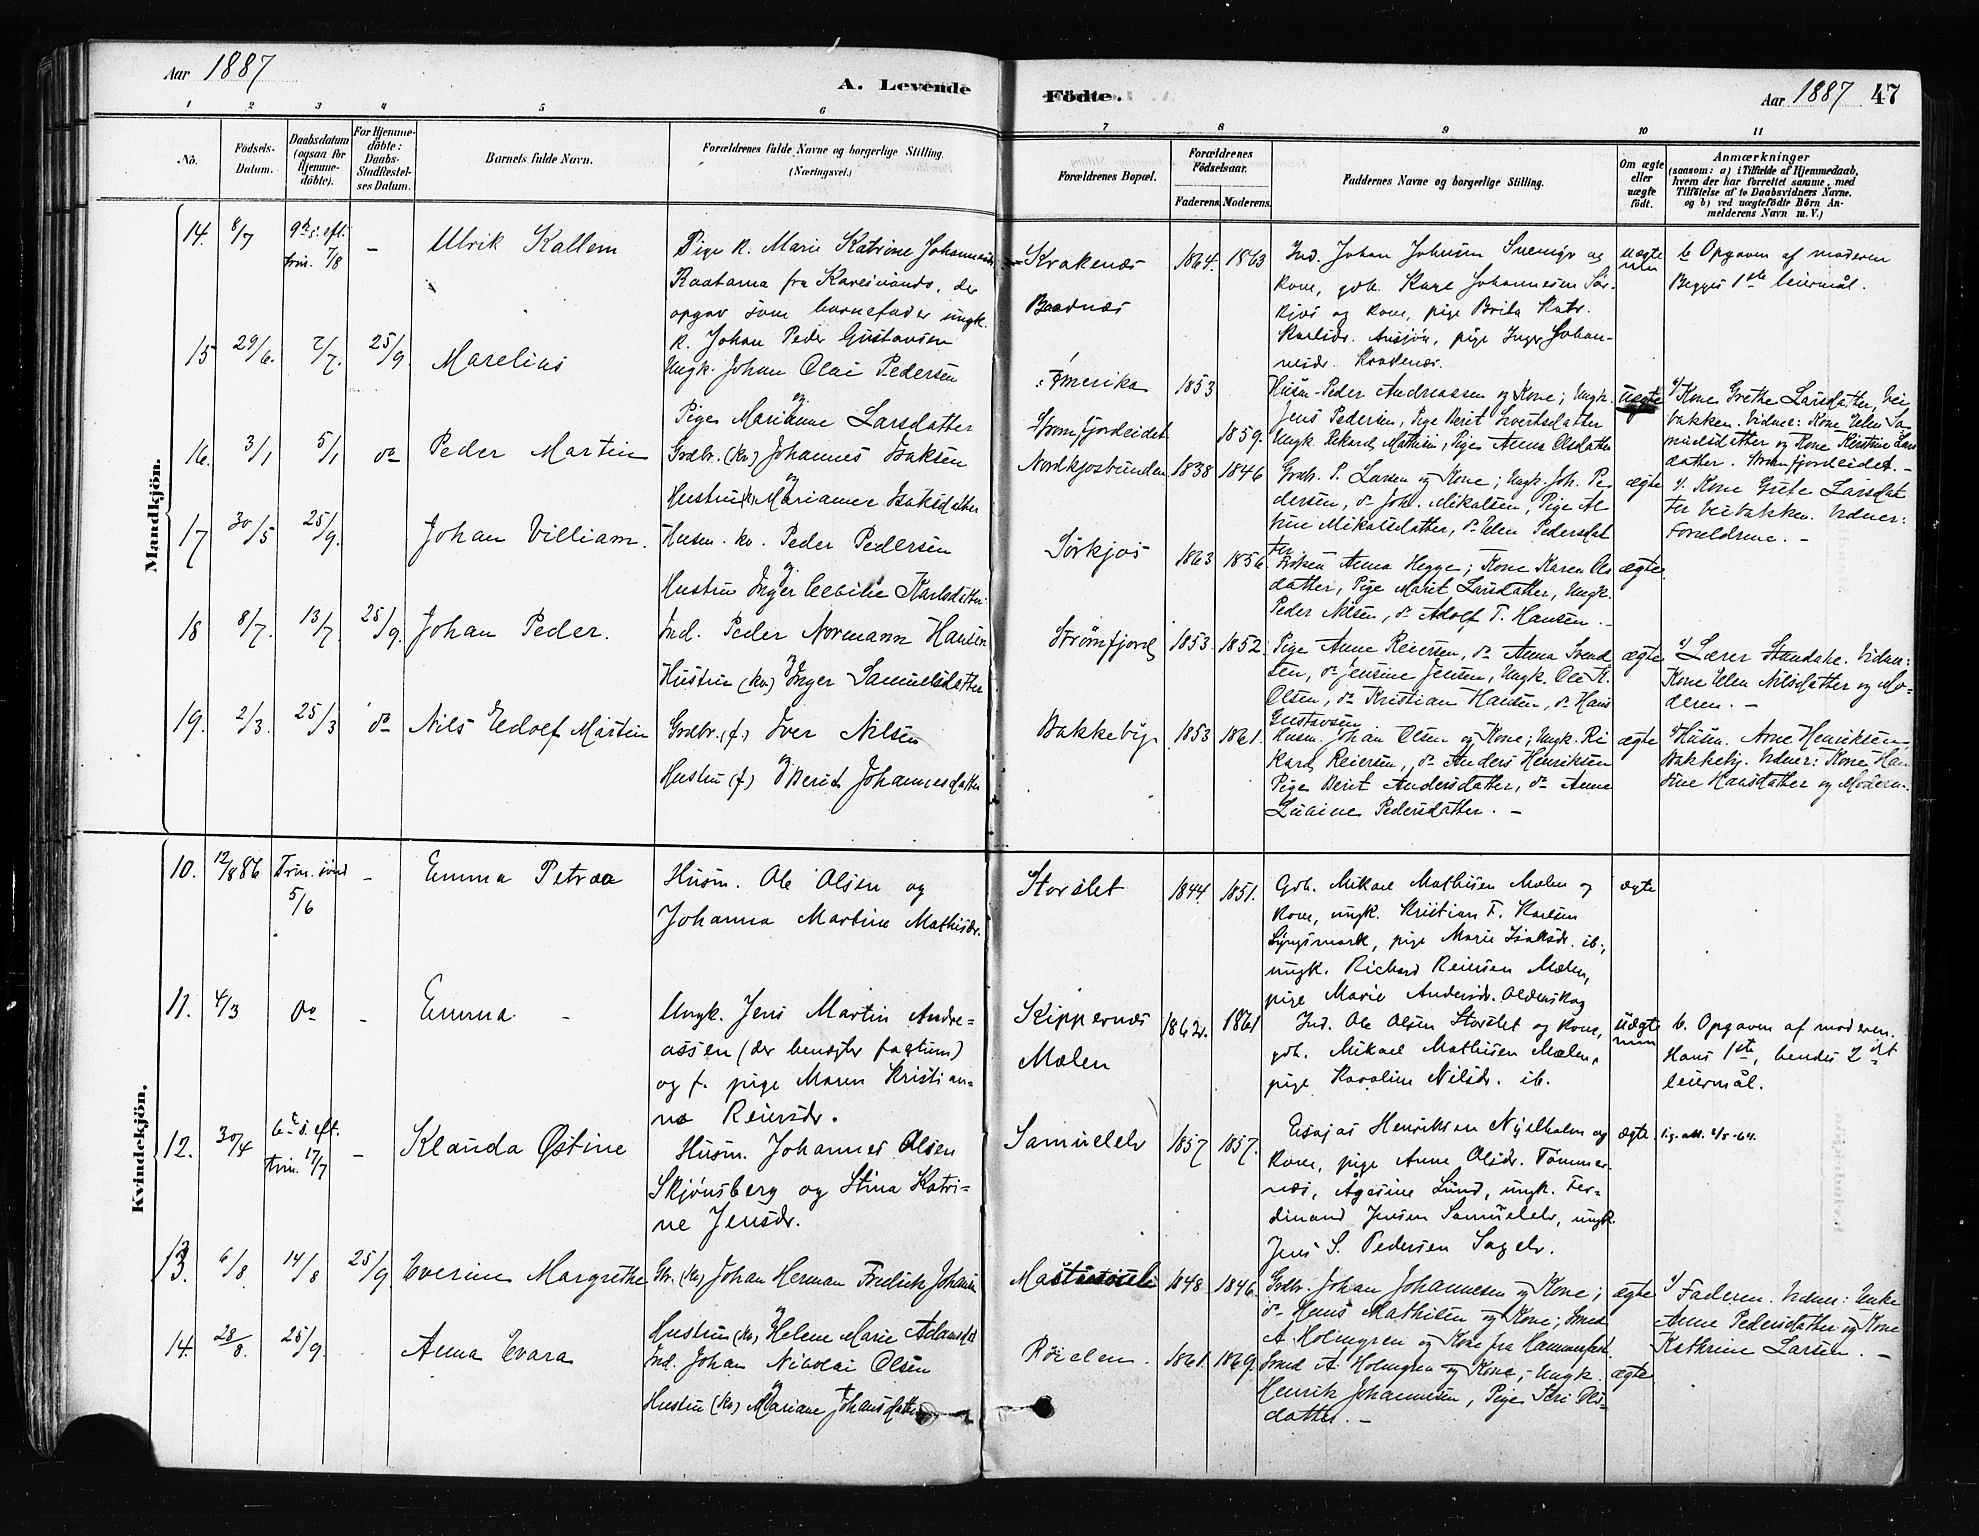 Aar 1887
A. Levende
Födte.
Aar 1887 47
1 2 3 4 5 6 7 8 9 10 11
No.
Födsels-
Datum.
Daabsdatum
(ogsaa for
Hjemme-
döbte).
For Hjemme-
döbte:
Daabs-
Stadfæstel-
ses Datum.
Barnets fulde Navn.
Forældrenes fulde Navne og borgerlige Stilling.
(Næringsvei.)
Forældrenes Bopæl.
Forældrenes
Födselsaar.
Faderens. Moderens.
Faddernes Navne og borgerlige Stilling.
Om ægte
eller
uægte
födt.
Anmærkninger
(saasom: a) i Tilfælde af Hjemmedaab,
hvem der har forrettet samme, med
Tilföielse af to Daabsvidners Navne.
og b) ved uægtefödte Börn An-
melderens Navn m. V.)
Mandkjön.
14. 8/7 9de s. eft.
trin. 7/8 - Ulrik Kallem
Pige k. Marie Katrine
Raatama fra Karesuando, der
opgav som barnefader ungk.
k. Johan Peder Gustavsen
Krakenæs
Baadnæs
1864. 1863
Ind. Johan Johnsen og
kone, gdb. Karl Johannesen Sør-
kjos og kone, pige Brita Katr.
Karlsdr. pige Inger Johan-
nesdr.
uægte
b. Opgaven af moderen
Begges 1ste leiermål.
15 29/6. 2/7. 25/9. Marelius
Ungk. Johan Olai Pedersen
og
Pige Marianne Larsdatter
Amerika
Strømfjordeidet
1853
1859.
Husm. Peder Andreassen og Kone; Ungk.
Jens Pedersen, Pige Berit Sivertsdatter
Ungk. Rikard Mathisen, Pige Anna Olsdatter
uægte
a/ Kone Grethe Larsdatter, Vei
bakken. Vidner: Kone Elen Sa-
muelsdatter og Kone Kirstine Lars
datter. Strømfjordeidet. -
16. 3/1 5/1 do Peder Martin
Grdbr. (kv.) Johannes Isaksen
og
Hustru (kv.) Isaksdatter
Nordkjosbunden 1838 1846
Grdbr. P. Larsen og Kone; Ungk. Joh. Pe-
dersen, do Joh. Mikalsen, Pige
Mikalsdatter, do Elen Pedersdat
ter
ægte
a/. Kone Grete Larsdat
ter Veibakken. Vidner:
Forældrene. -
17 30/5 25/9. Johan Villiam.
Husm. kv. Peder Pedersen
og
Hustru Inger Cecilie Karlsdatter.
Sørkjos 1863 1856.
Frøken Anna Hegge; Kone Karen Ols
datter, Pige Marit Larsdatter, Ungk.
Peder Nilsen, do Adolf T. Hansen. -
ægte
18 8/7. 13/7. 25/9. Johan Peder.
Ind. Peder Normann Hansen
og
Hustru (kv.) Inger Samuelsdatter
Strømfjord 1853. 1852.
Pige Anne Reiersen, do Anna Svend
sen, do Jensine Jensen, Ungk. Ole K.
Olsen, do Kristian Hansen, do Hans
Gustavsen
ægte
a/ Lærer Vidner:
Kone Elen Nilsdatter og Mo-
deren. -
19. 2/3. 25/3 do Nils Edolf Martin
Grdbr. (f.) Iver Nilsen
og
Hustru (f.) Berit Johannesdatter
Bakkeby 1853 1861.
Husm. Johan Olsen og Kone; Ungk. Ri
kard Reiersen, do Anders Henriksen
Pige Berit Andersdatter, do Anne
Pedersdatter. -
ægte
a/ Husm. Arne Henriksen
Bakkeby. Vidner: Kone Han
sine Hansdatter og Moderen.
Kvindekjön.
10. 12/8 86 Trin. sönd
5/6 - Emma Petrea
Husm. Ole Olsen og
Johanna Martine Mathisdr.
Storslet 1844 1851.
Gdb. Mikael Mathisen Mælen og
kone, ungk. Kristian F. Karlsen
Lyngsmark, pige Marie Isaksdr. ib.,
ungk. Richard Reiersen Mælen,
pige Marie Andersdr. Olderskog
ægte
11. 4/3 do - Emma -
Ungk. Jens Martin Andre-
assen (der benegter factum)
og f. pige Maren Kristian-
na Reiersdr.
Kippernæs
Mælen
1862. 1861
Ind. Ole Olsen Storslet og kone,
gdb. Mikael Mathisen Mælen,
pige Karoline Nilsdr. ib.
uægte
b. Opgaven af moderen.
Hans 1ste, hendes 2det
leiermål.
12. 30/4 6te s. eft.
trin. 17/7 - Klauda Østine
Husm. Johannes Olsen
Skjønsberg og Stina Katri-
ne Jensdr.
Samuelelv 1857 1857.
Esajas Henriksen Nyelholm og
kone, pige Anne Olsdr. Tømmer-
næs, Agesine Lund, ungk. Fer-
dinand Jensen Samuelelv, ungk.
Jens S. Pedersen Sagelv.
ægte.
13. 6/8 14/8 25/9 Everine Margrethe
Gbr. (kv) Johan Herman Fredrik Johansen
og
Hustru (kv.) Helene Marie
1848 1846.
Grdbr. Johan Johannesen og Kone;
do Hans Mathisen og Kone; Smed
A. Holmgren og Kone fra Hammerfest.
ægte
a/ Faderen. Vidner: Enke
Anne Pedersdatter og Kone
Kathrine Larsen. -
14. 28/8. 25/9. Anna Evara
Ind. Johan Nicolai Olsen
og
Hustru (kv) Mariane Johansdatter
Röielen. 1861. 1869.
Smed A. Holmgren og Kone; Ungk.
Henrik Johannesen, Pige Siri Ols-
datter. -
ægte